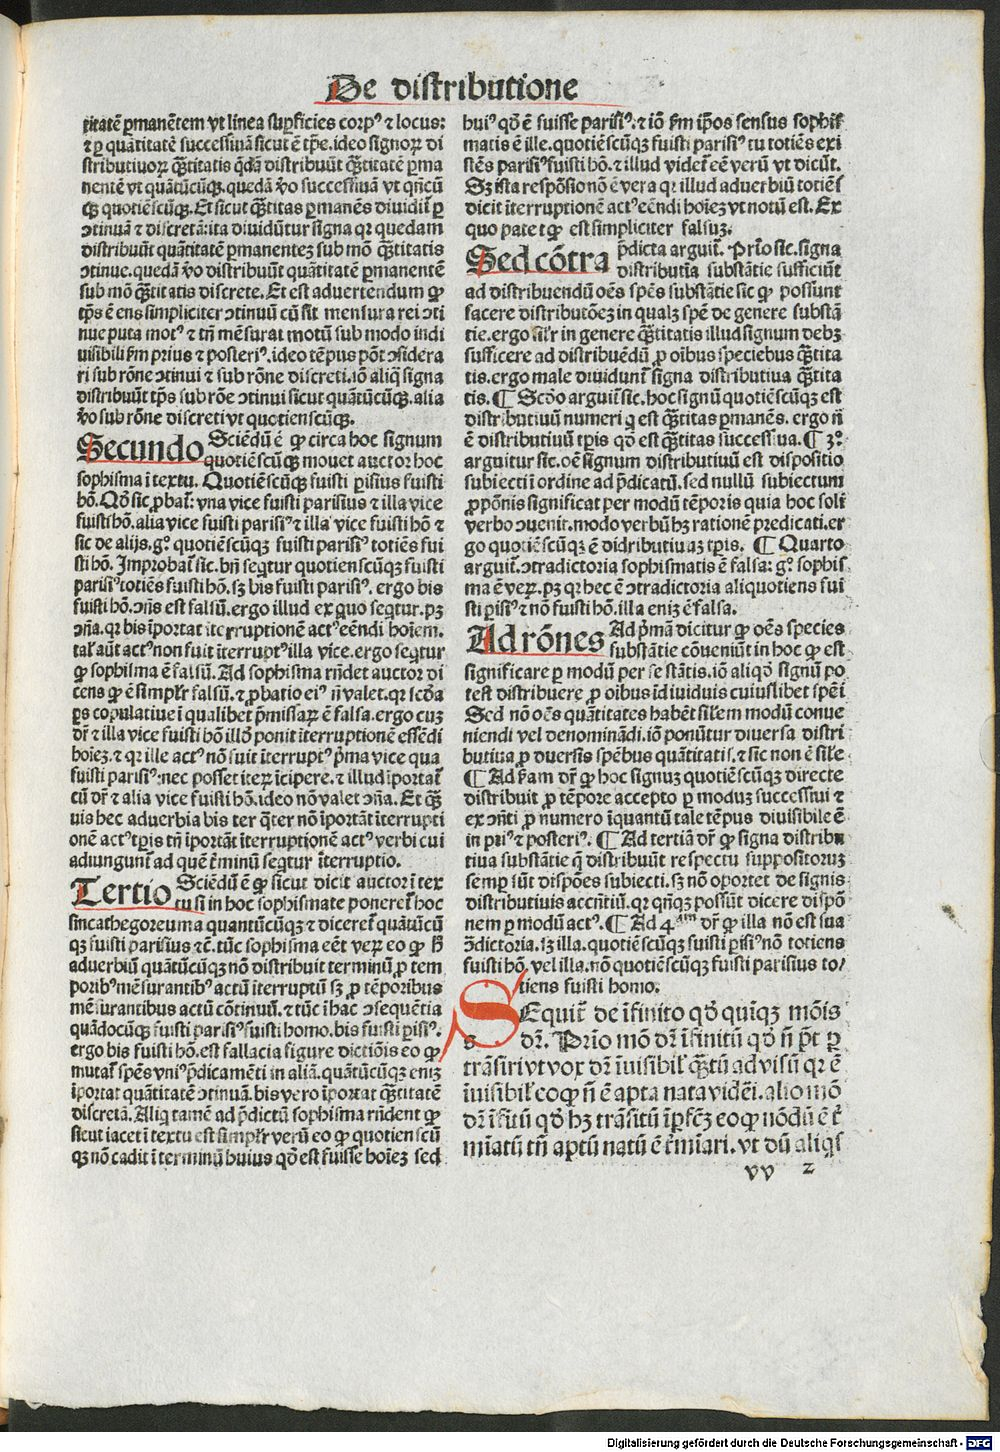 De distributione
titatē ꝑmanētem vt linea suꝑficies corpꝰ ⁊ locus:
⁊ ꝑ quātitatē successiuā sicut ē tp̄e. ideo signoꝝ di
stributiuoꝝ q̄titatis q̄dā distribuūt q̄titatē ꝑma
nentē vt quātūcūqꝫ. quedā v̄o successiuā vt qn̄cū
qꝫ quotiēscūqꝫ. Et sicut q̄titas ꝑmanēs diuidit̄ ꝑ
ↄtinuā ⁊ discretā: ita diuidūtur signa qꝛ quedam
distribuūt quātitatē ꝑmanentez sub mō q̄titatis
ↄtinue. quedā v̄o distribuūt quātitatē ꝑmanentē
sub mō q̄titatis discrete. Et est aduertendum ꝙ
tp̄s ē ens simpliciter ↄtinuū cū sit mensura rei ↄti
nue puta motꝰ ⁊ tn̄ mēsurat motū sub modo indi
uisibili ẜm prius ⁊ posteriꝰ. ideo tēpus pōt ↄsidera
ri sub rōne ↄtinui ⁊ sub rōne discreti. iō aliq̄ signa
distribuūt tp̄s sub rōe ↄtinui sicut quātūcūqꝫ. alia
v̄o sub rōne discreti vt quotienscūqꝫ.
Secundo Sciēdū ē ꝙ circa hoc signum
quotiēscūqꝫ mouet auctor hoc
sophisma ī textu. Quotiēscūqꝫ fuisti ꝑisius fuisti
hō. Qd̄ sic ꝓbat̄: vna vice fuisti parisius ⁊ illa vice
fuisti hō. alia vice fuisti parisiꝰ ⁊ illa vice fuisti hō ⁊
sic de alijs. gͦ. quotiēscūqꝫ fuisti parisiꝰ totiēs fui
sti hō. Improbat̄ sic. bn̄ seqͥtur quotienscūqꝫ fuisti
parisiꝰ totiēs fuisti hō. sꝫ bis fuisti parisiꝰ. ergo bis
fuisti hō. ↄn̄s est falsū. ergo illud ex quo seqͥtur. pꝫ
ↄn̄a. qꝛ bis īportat iterruptionē actꝰ eēndi hoīem.
tal̄ aūt actꝰ non fuit īterruptꝰ illa vice. ergo seqͥtur
ꝙ sophisma ē falsū. Ad sophisma rn̄det auctor di
cens ꝙ ē simpl̄r falsū. ⁊ ꝓbatio eiꝰ n̄ valet. qꝛ scd̄a
ꝑs copulatiue ī qualibet p̄missaꝝ ē falsa. ergo cuꝫ
dr̄ ⁊ illa vice fuisti hō illō ponit īterruptionē essēdi
hoīez. ⁊ qꝛ ille actꝰ nō fuit īterruptꝰ p̄ma vice qua
fuisti parisiꝰ: nec posset iteꝝ īcipere. ⁊ illud īportat̄
cū dr̄ ⁊ alia vice fuisti hō. ideo nō valet ↄn̄a. Et q̄
uis hec aduerbia bis ter q̄ter nō īportāt īterrupti
onē actꝰ tꝑis tn̄ īportāt īterruptionē actꝰ verbi cui
adiungunt̄ ad quē t̄minū seqͥtur īterruptio.
Tertio Sciēdū ē ꝙ sicut dicit auctor ī tex
tu si in hoc sophismate poneret̄ hoc
sincathegoreuma quantūcūqꝫ ⁊ diceret̄ quātūcū
qꝫ fuisti parisius ⁊t̄. tūc sophisma eēt veꝝ eo ꝙ h̄
aduerbiū quātūcūqꝫ nō distribuit terminū ꝓ tem
poribꝰ mēsurantibꝰ actū īterruptū sꝫ ꝓ tēporibus
mēsurantibus actū cōtinuū. ⁊ tūc ī hac ↄsequētia
quādocūqꝫ fuisti parisiꝰ fuisti homo. bis fuisti ꝑisiꝰ.
ergo bis fuisti hō. est fallacia figure dictiōis eo ꝙ
mutat̄ spēs vniꝰ p̄dicamēti in aliā. quātūcūqꝫ eniꝫ
īportat quātitatē ↄtinuā. bis vero īportat q̄titatē
discretā. Aliq̄ tamē ad p̄dictū sophisma rn̄dent ꝙ
sicut iacet ī textu est simpl̄r verū eo ꝙ quotienscū
qꝫ nō cadit ī terminū huius qd̄ est fuisse hoīez sed
huiꝰ qd̄ ē fuisse parisiꝰ: ⁊ iō ẜm ip̄os sensus sophis
matis ē ille. quotiēscūqꝫ fuisti parisiꝰ tu totiēs exi
stēs parisiꝰ fuisti hō. ⁊ illud videt̄ eē verū vt dicūt.
Sꝫ ista respōsio nō ē vera qꝛ illud aduerbiū totiēs
dicit īterruptionē actꝰ eēndi hoīez vt notū est. Ex
quo patet ꝙ est simpliciter falsuꝫ.
Sed cōtra p̄dicta arguit̄. Prīo sic. signa
distributīa substātie sufficiūt
ad distribuendū oēs spēs substātie sic ꝙ possunt
facere distributōeꝫ in qualꝫ spē de genere substā
tie. ergo sil̄r in genere q̄titatis illud signum debꝫ
sufficere ad distribuēdū ꝓ oībus speciebus q̄tita
tis. ergo male diuidunt̄ signa distributiua q̄tita
tis. ¶ Scd̄o arguit̄ sic. hoc signū quotiēscūqꝫ est
distributiuū numeri q̄ est q̄titas ꝑmanēs. ergo n̄
ē distributiuū tꝑis qd̄ est q̄titas successiua. ¶ 3ͦ.
arguitur sic. oē signum distributiuū est dispositio
subiecti ī ordine ad p̄dicatū. sed nullū subiectum
ꝓpōnis significat per modū tēporis quia hoc soli
verbo ↄuenit. modo verbū hꝫ rationē predicati. er
go quotiēscūqꝫ ē didributiuaꝫ tꝑis. ¶ Quarto
arguit̄. ↄtradictoria sophismatis ē falsa: gͦ. sophis
ma ē veꝝ. pꝫ qꝛ hec ē ↄtradictoria aliquotiens fui
sti ꝑisiꝰ ⁊ nō fuisti hō. illa eniꝫ ē falsa.
Ad rōnes Ad p̄mā dicitur ꝙ oēs species
substātie cōueniūt in hoc ꝙ est
significare ꝑ modū per se stātis. iō aliqd̄ signū po
test distribuere ꝓ oībus īdiuiduis cuiuslibet spēi
Sed nō oēs quātitates habēt sil̄em modū conue
niendi vel denominādi. iō ponūtur diuersa distri
butiua ꝓ diuersis spēbus quātitatis. ⁊ sic non ē sil̄e.
¶ Ad scd̄am dr̄ ꝙ hoc signuꝫ quotiēscūqꝫ directe
distribuit ꝓ tēpore accepto ꝑ moduꝫ successiui ⁊
ex ↄn̄ti ꝓ numero īquantū tale tēpus diuisibile ē
in priꝰ ⁊ posteriꝰ. ¶ Ad tertiā dr̄ ꝙ signa distribu
tiua substātie q̄ distribuūt respectu suppositoruꝫ
semꝑ sūt dispōes subiecti. sꝫ nō oportet de signis
distributiuis accn̄tiū. qꝛ qn̄qꝫ possūt dicere dispō
nem ꝑ modū actꝰ. ¶ Ad 4ᵃᵐ dr̄ ꝙ illa nō est sua
ↄ̄dictoria. sꝫ illa. quotiēscūqꝫ fuisti ꝑisiꝰ nō totiens
fuisti hō. vel illa. nō quotiēscūqꝫ fuisti parisius to/
tiens fuisti homo.
SEquit̄ de īfinito qd̄ quīqꝫ mōis
s dr̄. Prīo mō dr̄ īfinitū qd̄ n̄ pōt ꝑ
trāsiri vt vox dr̄ īuisibil̄ q̄tū ad visū qꝛ ē
īuisibil̄ eo ꝙ n̄ ē apta nata vidēi. alio mō
dr̄ īfitū qd̄ hꝫ trāsitū īpfc̄ꝫ eo ꝙ nōdū ē t̄
miatū tn̄ aptū natū ē t̄miari. vt dū aliqͥs
vv 2
Digitalisierung gefördert durch die Deutsche Forschungsgemeinschaft - DFG